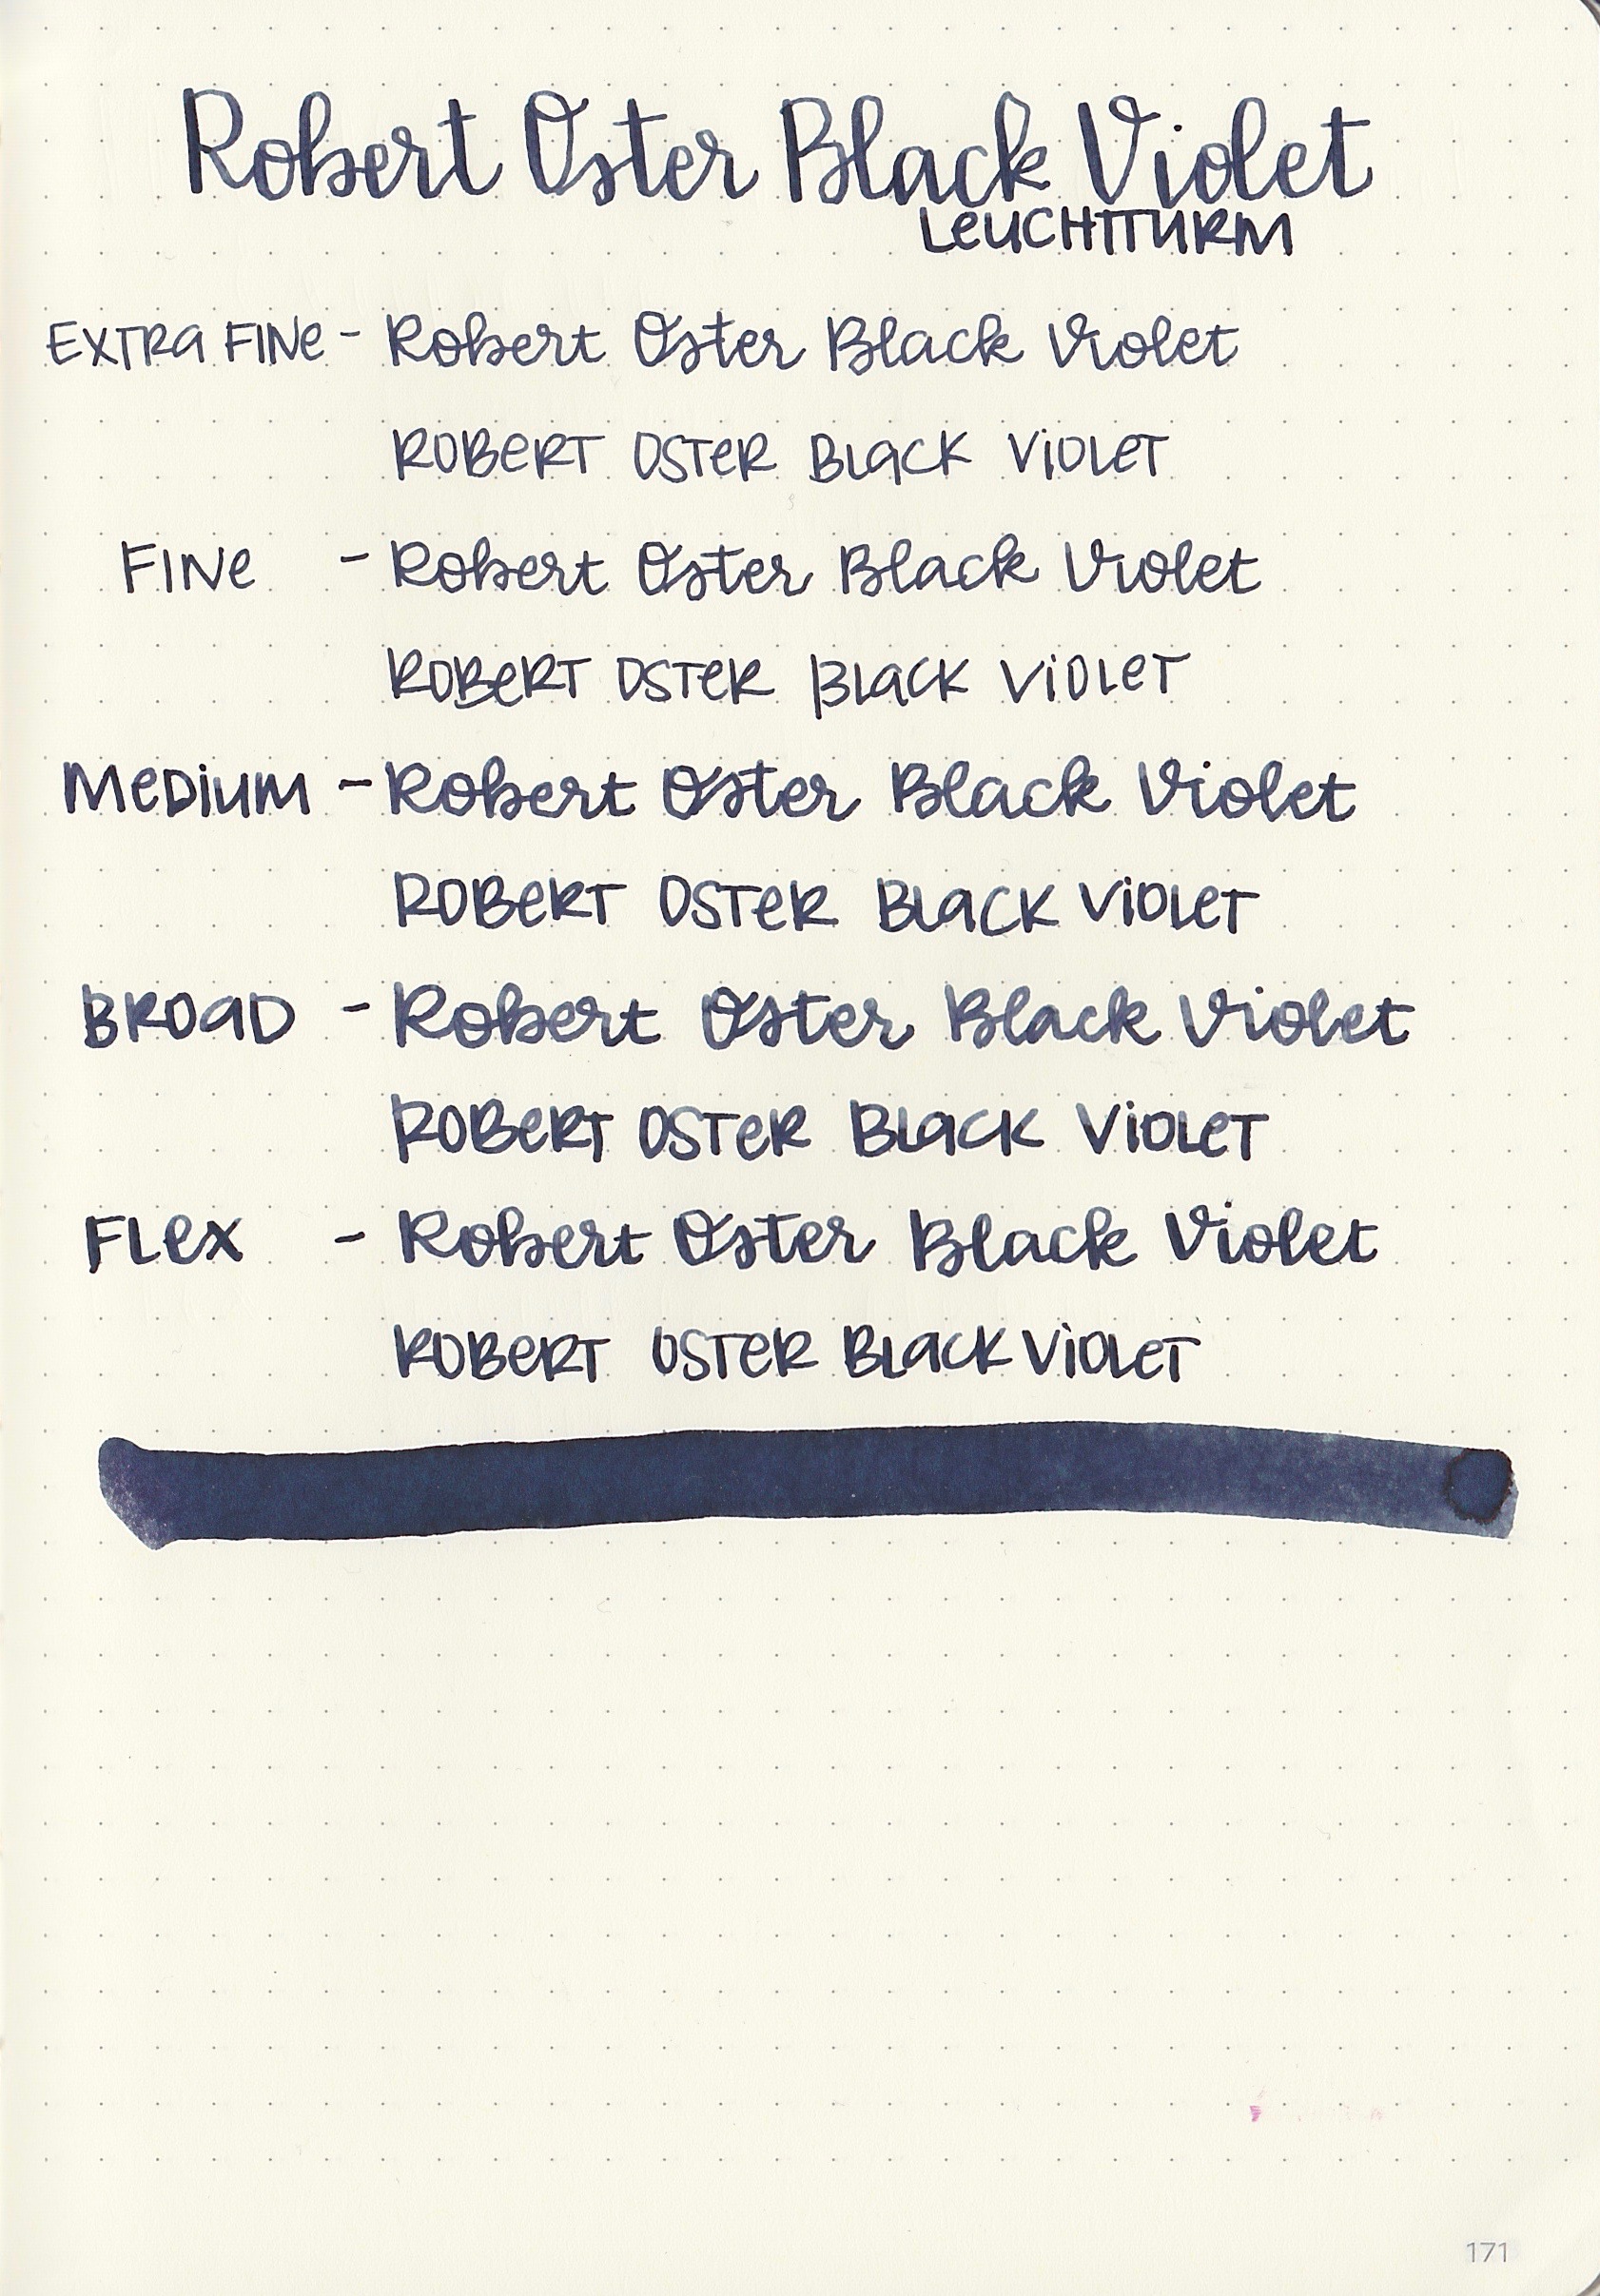 Robert Oster Black Violet
LEUCHTTURM
EXTRA FINE - Robert Oster Black Violet
ROBERT OSTER BLACK VIOLET
FINE - Robert Oster Black Violet
ROBERT OSTER BLACK VIOLET
MEDIUM - Robert Oster Black Violet
ROBERT OSTER BLACK VIOLET
BROAD - Robert Oster Black Violet
ROBERT OSTER BLACK VIOLET
FLEX - Robert Oster Black Violet
ROBERT OSTER BLACK VIOLET
171